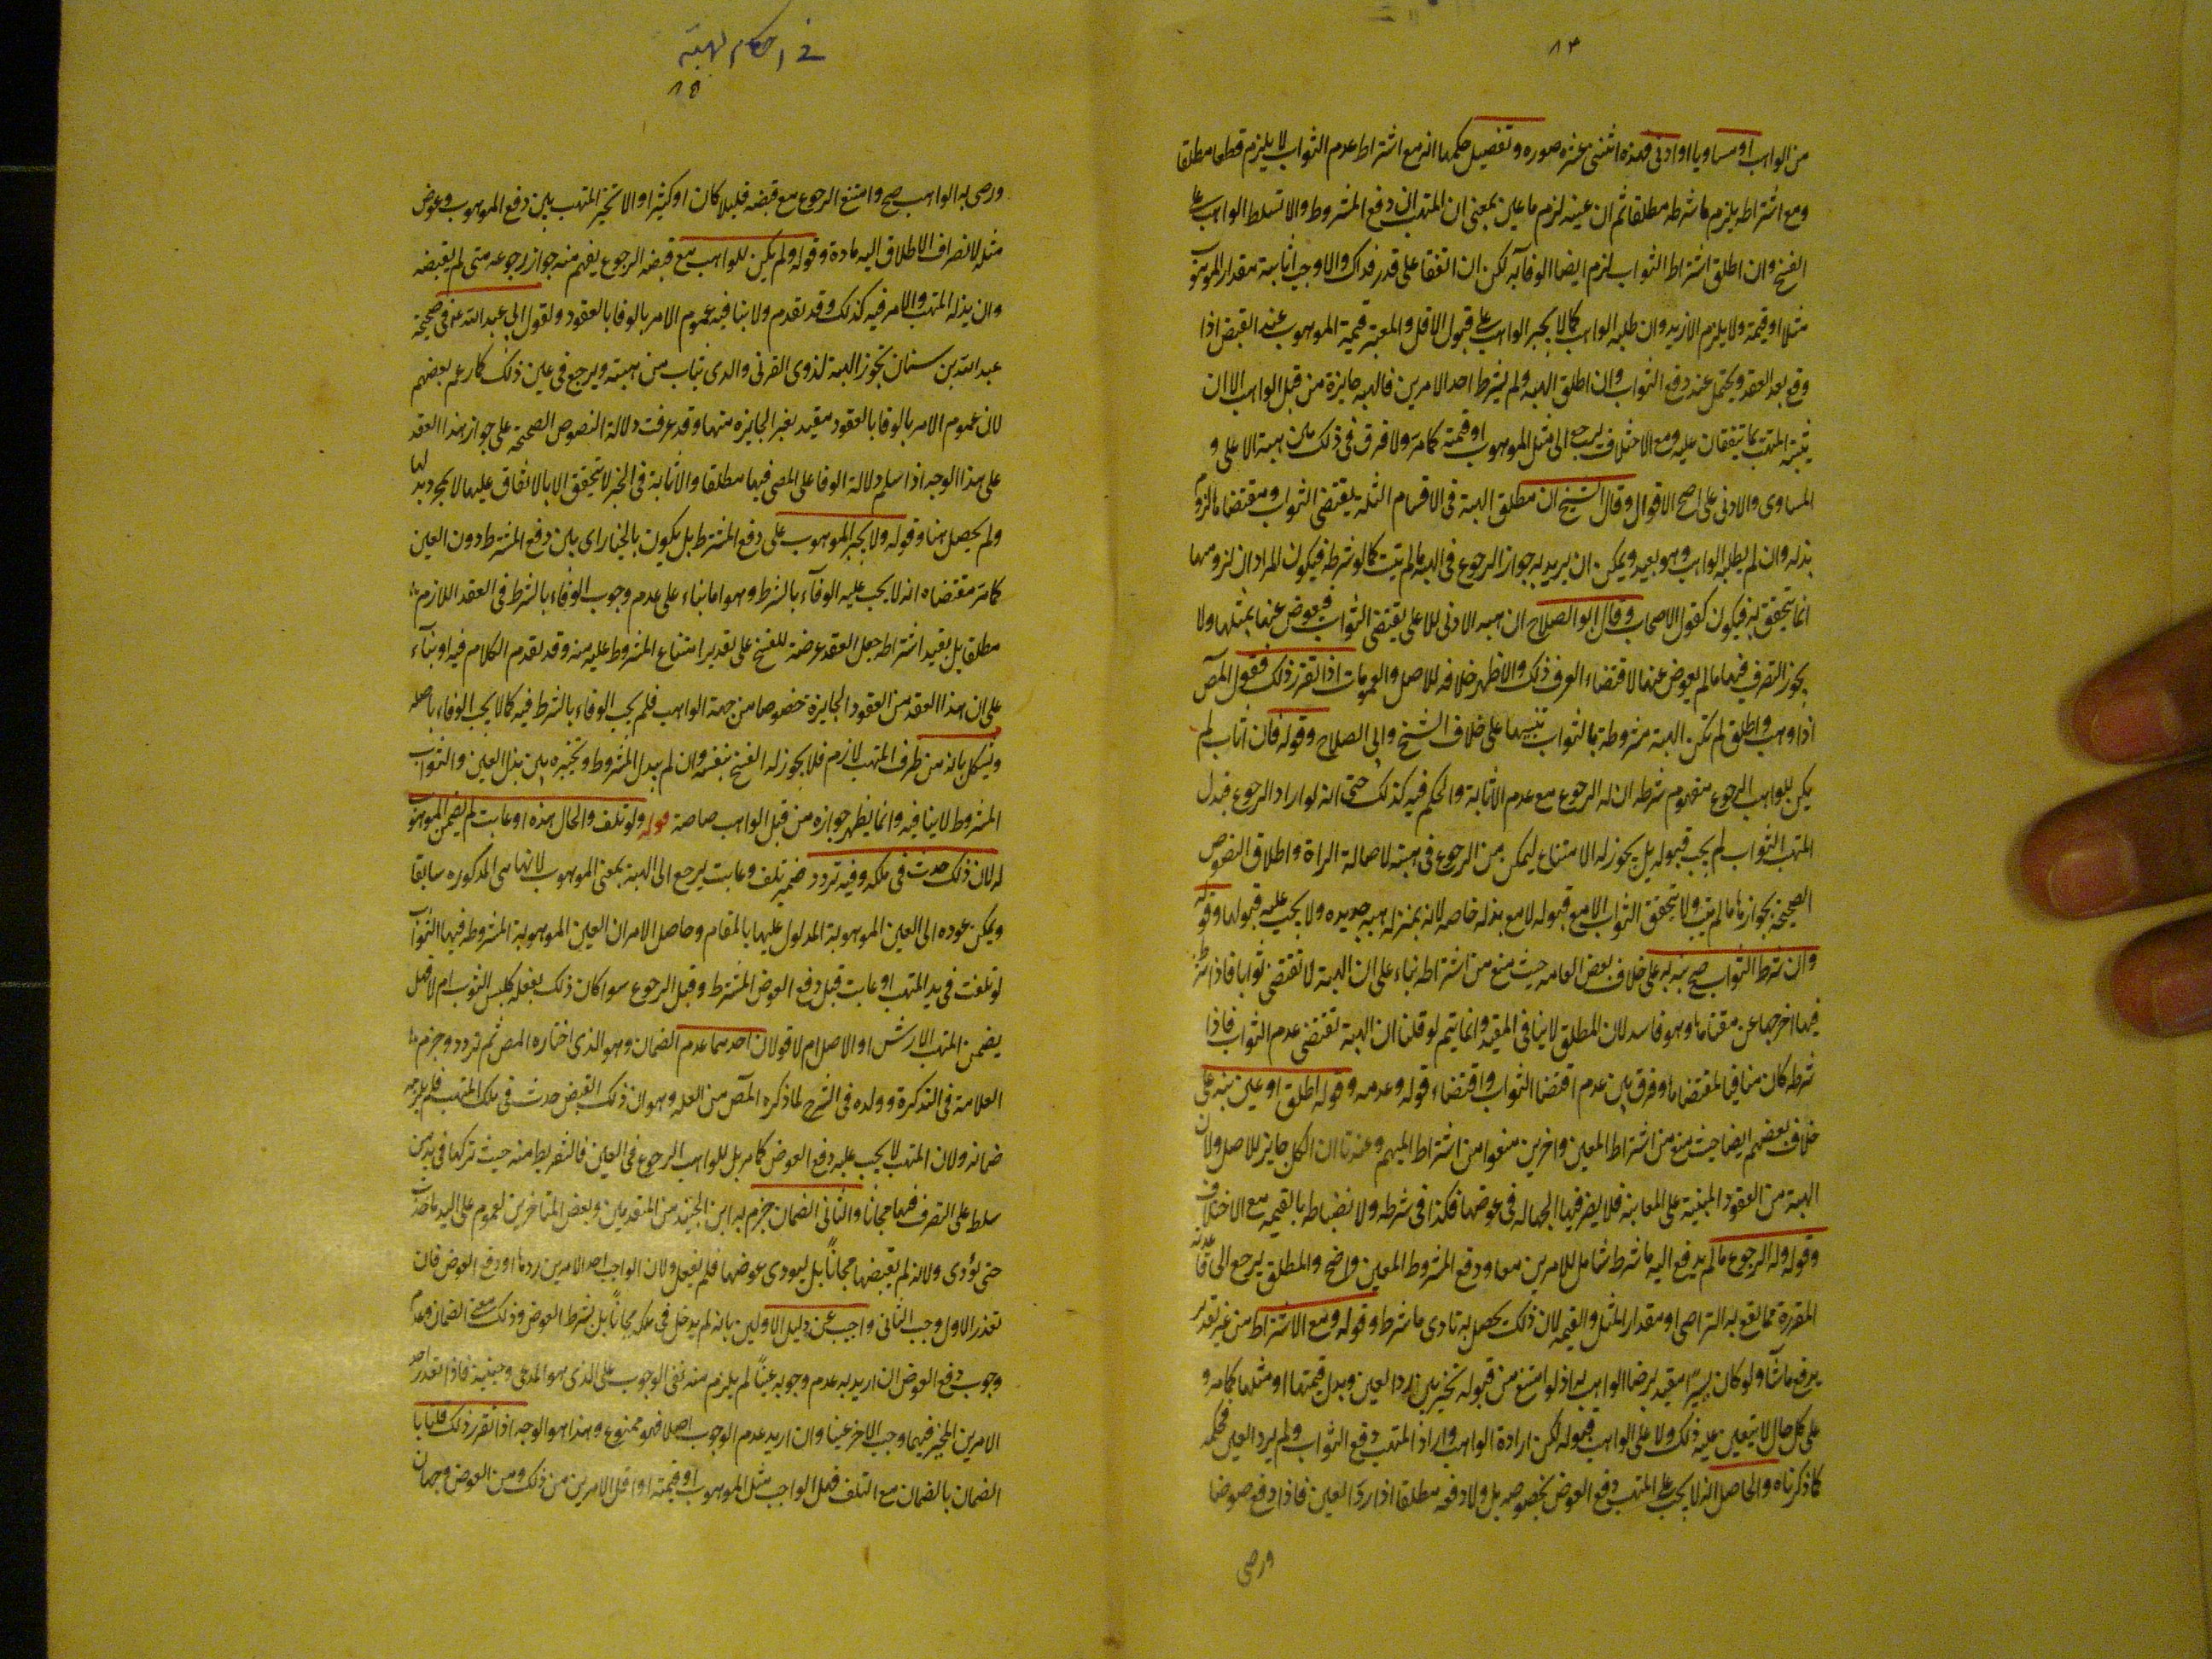 ٨٣
من الواهب او مساويا او ادنى فهذه اثنتى عشره صوره وتفصيل حكمها انه مع اشتراط عدم الثواب لا يلزم قطعا مطلقا
ومع اشتراطه يلزم ما شرطه مطلقا ثم ان عينه لزم ما عين بمعنى ان المتهب ان دفع المشروط والا تسلط الواهب على
الفسخ وان اطلق اشتراط الثواب لزم ايضا الوفا به لكن ان اتفقا على قدر فذاك والا وجب اثابة مقدار الموهوب
مثلا او قيمة ولا يلزم الازيد وان طلبه الواهب كما لا يجبر الواهب على قبول الاقل والمعتبر قيمة الموهوب عند القبض اذا
وقع بعد العقد ويحتمل عند دفع الثواب وان اطلق الهبه ولم يشرط احد الامرين فالهبه جايزة من قبل الواهب الا ان
يثيبه المتهب بما يتفقان عليه ومع الاختلاف يرجع الى مثل الموهوب او قيمته كما مر ولا فرق فى ذلك بين هبة الاعلى و
المساوى والادنى على اصح الاقوال وقال الشيخ ان مطلق الهبة فى الاقسام الثلثه يقتضى الثواب ومقتضاه لزوم
بذله وان لم يطلبه الواهب وهو بعيد ويمكن ان يريد به جواز الرجوع فى الهبه ما لم يثب كما لو شرطه فيكون المراد ان لزومها
انما يتحقق به فيكون كقول الاصحاب وقال ابو الصلاح ان هبه الادنى للاعلى يقتضى الثواب فيعوض عنها بمثلها ولا
يجوز التصرف فيها ما لم يعوض عنها لاقتضاء العرف ذلك والاظهر خلافه للاصل والعمومات اذا تقرر ذلك فقول المص
اذا وهب واطلق لم تكن الهبة مشروطة بالثواب تنبيها على خلاف الشيخ وابى الصلاح وقوله فان اثاب لم
يكن للواهب الرجوع مفهوم شرطه ان له الرجوع مع عدم الاثابة والحكم فيه كذلك حتى انه لو اراد الرجوع فبذل
المتهب الثواب لم يجب قبوله بل يجوز له الامتناع ليمكن من الرجوع فى هبته لاصالة البراة واطلاق النصوص
الصحيحة بجوازها ما لم يثب ولا يتحقق الثواب الا مع قبوله لا مع بذله خاصه لانه بمنزله هبه جديده ولا يجب عليه قبولها وقوله
وان شرط الثواب صح نبه به على خلاف بعض العامه حيث منع من اشتراطه بناء على ان الهبة لا تقتضى ثوابا فاذا شرط
فيها اخرجها عن مقتضاها وهو فاسد لان المطلق لا ينافى المقيد وانما يتم لو قلنا ان الهبة تقتضى عدم الثواب فاذا
شرطه كان منافيا لمقتضاها وفرق بين عدم اقتضا الثواب واقتضاء قوله وعدمه وقوله اطلق او عين نبه على
خلاف بعضهم ايضا حيث منع من اشتراط المعين واخرين منعوا من اشتراط المبهم وعندنا ان الكل جايز للاصل ولان
الهبة من العقود المبنية على المغابنه فلا يضر فيها الجهاله فى عوضها فكذا فى شرطه ولانضباطه بالقيمه مع الاختلاف
وقوله وله الرجوع ما لم يدفع اليه ما شرط شامل للامرين معا ودفع المشروط المعين واضح والمطلق يرجع الى قاعدته
المقررة مما يقع به التراضى او مقدار المثل والقيمه لان ذلك يحصل به تادى ما شرط وقوله ومع الاشتراط من غير تقدير
يدفع ما شا ولو كان يسيرا مقيد برضا الواهب به اذ لو امتنع من قبوله تخير بين رد العين وبدل قيمتها او مثلها كما مر و
على كل حال لا يتعين عليه ذلك ولا على الواهب قبوله لكن ارادة الواهب واراد المتهب دفع الثواب ولم يرد العين فحكمه
كما ذكرناه والحاصل انه لا يجب على المتهب دفع العوض بخصوصه بل ولا دفعه مطلقا اذا رد العين فاذا دفع عوضا
ورضى
فى احكام الهبة
٨٥
ورضى به الواهب صح وامتنع الرجوع مع قبضه قليلا كان او كثيرا والا تخير المتهب بين دفع الموهوب وعوض
مثله لانصراف الاطلاق اليه عادة وقوله ولم يكن للواهب مع قبضه الرجوع يفهم منه جواز رجوعه متى لم يقبضه
وان بذله المتهب والامر فيه كذلك وقد تقدم ولا ينافيه عموم الامر بالوفا بالعقود ولقول ابى عبد الله ع فى صحيحة
عبد الله بن سنان تجوز الهبة لذوى القربى والذى يثاب من هبته ويرجع فى غير ذلك كما زعم بعضهم
لان عموم الامر بالوفا بالعقود مقيد بغير الجايزه منها وقد عرفت دلالة النصوص الصحيحة على جواز هذا العقد
على هذا الوجه اذا سلم دلالة الوفا على المضى فيها مطلقا والاثابة فى الخبر لا يتحقق الا بالاتفاق عليها لا بمجرد بذلها
ولم يحصل هنا وقوله ولا يجبر الموهوب على دفع المشترط بل يكون بالخيار اى بين دفع المشترط دون العين
كما مر مقتضاه انه لا يجب عليه الوفاء بالشرط وهو اما بناء على عدم وجوب الوفاء بالشرط فى العقد اللازم
مطلقا بل يفيد اشتراطه جعل العقد عرضة للفسخ على تقدير امتناع المشروط عليه منه وقد تقدم الكلام فيه او بناء
على ان هذا العقد من العقود الجايزة خصوصا من جهة الواهب فلم يجب الوفاء بالشرط فيه كما لا يجب الوفاء باصله
ويشكل بانه من طرف المتهب لازم فلا يجوز له الفسخ بنفسه وان لم يبدل المشروط وتخيره بين بذل العين والثواب
المشروط لا ينافيه وانما يظهر جوازه من قبل الواهب خاصة قوله ولو تلف والحال هذه او عابت لم يضمن الموهوب
له لان ذلك حدث فى ملكه وفيه تردد ضمير تلف وعابت يرجع الى الهبة بمعنى الموهوب لانها هى المذكوره سابقا
ويمكن عوده الى العين الموهوبة المدلول عليها بالمقام وحاصل الامر ان العين الموهوبة المشروطه فيها الثواب
لو تلفت فى يد المتهب او عابت قبل دفع العوض المشترط وقبل الرجوع سوا كان ذلك بفعله كلبس الثوب ام لا فهل
يضمن المتهب الارش او الاصل ام لا قولان احدهما عدم الضمان وهو الذى اختاره المص ثم تردد وجزم به
العلامة فى التذكرة وولده فى الشرح لما ذكره المص من العله وهو ان ذلك القبض حدث فى ملك المتهب فلم يلزمه
ضمانه ولان المتهب لا يجب عليه دفع العوض كما مر بل للواهب الرجوع فى العين فالتفريط منه حيث تركها فى يد من
سلط على التصرف فيها مجانا والثانى الضمان جزم به ابن الجنيد من المتقدمين وبعض المتاخرين لعموم على اليد ما اخذت
حتى تؤدى ولانه لم يقبضها مجانا بل ليودى عوضها فلم يفعل ولان الواجب احد الامرين ردها او دفع العوض فان
تعذر الاول وجب الثانى واجيب عن دليل الاولين بانه لم يدخل فى ملكه مجانا بل بشرط العوض وذلك معنى الضمان وعدم
وجوب دفع العوض ان اريد به عدم وجوبه عينا لم يلزم منه نفى الوجوب على الذى هو المدعى وحينئذ فاذا تعذر احد
الامرين المخير فيهما وجب الاخر عينا وان اريد عدم الوجوب اصلا فهو ممنوع وهذا هو الوجه اذا تقرر ذلك فان قلنا
الضمان بالضمان مع التلف فهل الواجب مثل الموهوب او قيمته او اقل الامرين من ذلك ومن العوض وجهان